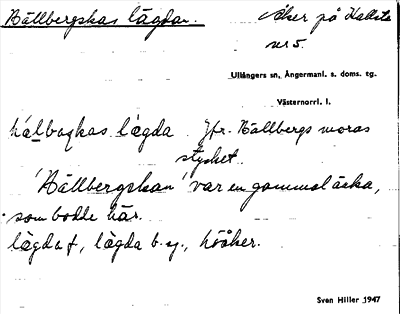 Hällbergskas lägdan. Åker på Kallsta
nr 5.
Ullångers sn, Ångermanl. s. doms. tg.
Västernorrl. l.
hálbaqkas lægda. Jfr. Hällbergs moras
stycket.
'Hällbergskan' var en gammal änka,
som bodde här.
lægda f, lægda b. sg., höåker.
Sven Hiller 1947